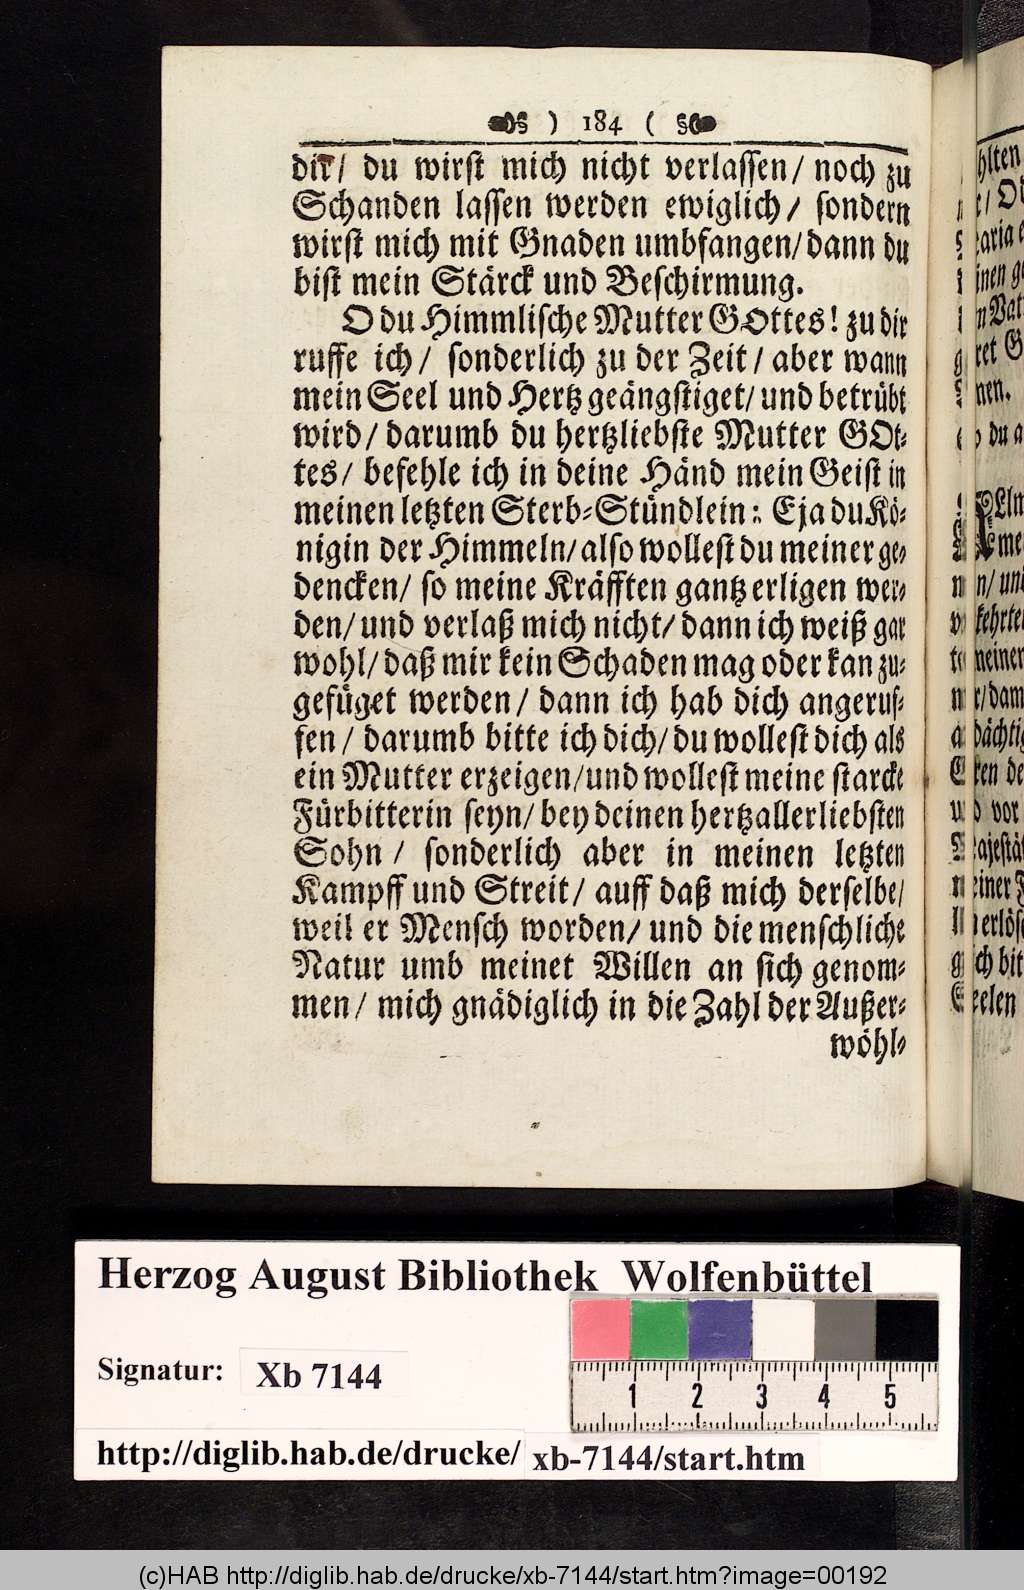 ) 184 (
dir/ du wirst mich nicht verlassen/ noch zu
Schanden lassen werden ewiglich/ sondern
wirst mich mit Gnaden umbfangen/ dann du
bist mein Stärck und Beschirmung.
O du Himmlische Mutter GOttes! zu dir
ruffe ich/ sonderlich zu der Zeit/ aber wann
mein Seel und Hertz geängstiget/ und betrübt
wird/ darumb du hertzliebste Mutter GOt-
tes/ befehle ich in deine Händ mein Geist in
meinen letzten Sterb-Stündlein: Eja du Kö-
nigin der Himmeln/ also wollest du meiner ge-
dencken/ so meine Kräfften gantz erligen wer-
den/ und verlaß mich nicht/ dann ich weiß gar
wohl/ daß mir kein Schaden mag oder kan zu-
gefüget werden/ dann ich hab dich angeruf-
fen/ darumb bitte ich dich/ du wollest dich als
ein Mutter erzeigen/ und wollest meine starcke
Fürbitterin seyn/ bey deinen hertzallerliebsten
Sohn/ sonderlich aber in meinen letzten
Kampff und Streit/ auff daß mich derselbe/
weil er Mensch worden/ und die menschliche
Natur umb meinet Willen an sich genom-
men/ mich gnädiglich in die Zahl der Außer-
wöhl-
Herzog August Bibliothek Wolfenbüttel
Signatur: Xb 7144
1 2 3 4 5
http://diglib.hab.de/drucke/ xb-7144/start.htm
(c)HAB http://diglib.hab.de/drucke/xb-7144/start.htm?image=00192